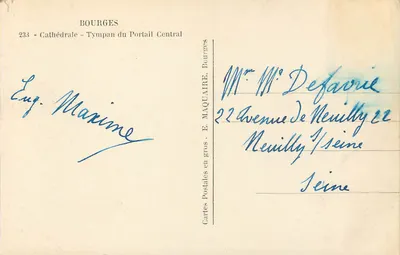 BOURGES
234 - Cathédrale - Tympan du Portail Central
Eug. Maxime
Cartes Postales en gros. E. MAQUAIRE, Bourges
Mr Me Defavrie
22 Avenue de Neuilly 22
Neuilly s/seine
Seine